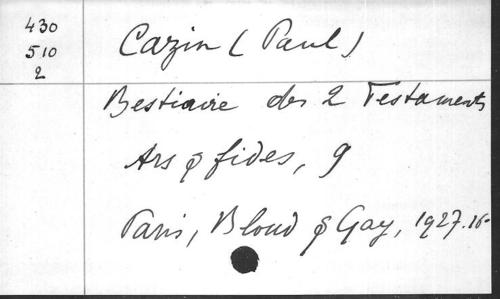 430
510
2
Cazin (Paul)
Bestiaire des 2 Testaments
Ars & fides, 9
Paris, Bloud & Gay, 1927. 16°